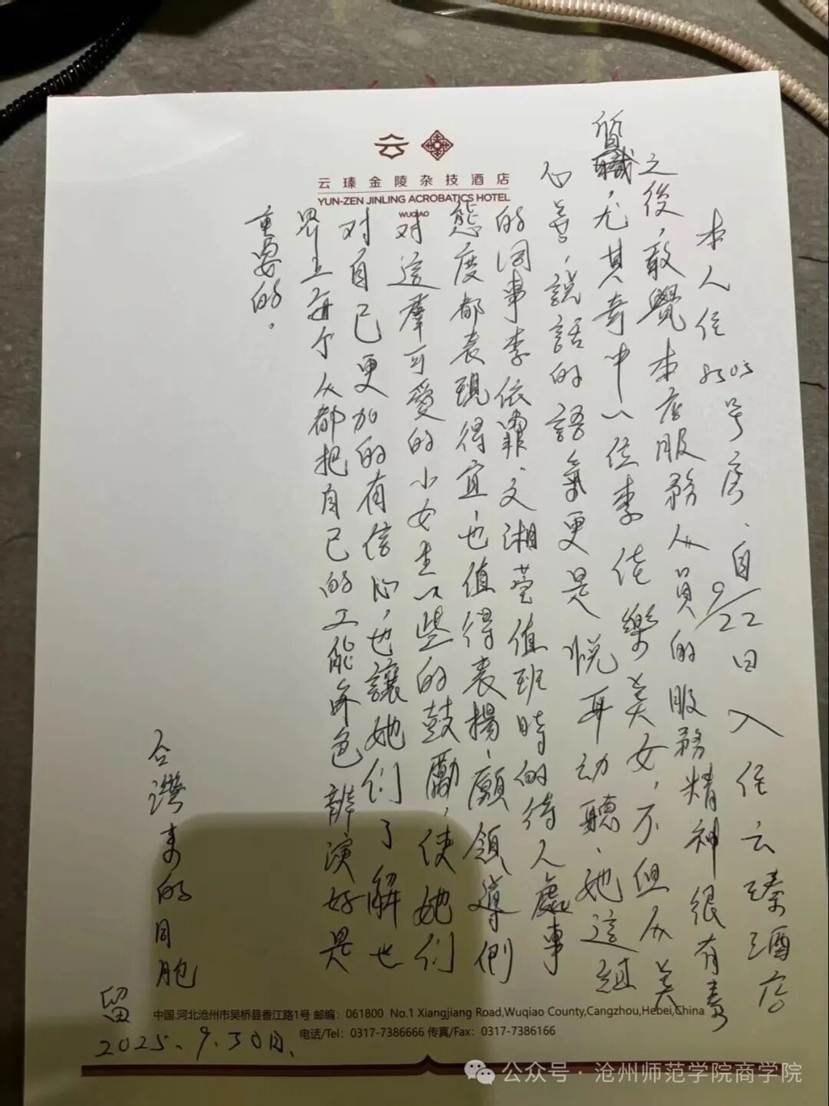 云瑧金陵杂技酒店
YUN-ZEN JINLING ACROBATICS HOTEL
WUQIAO
本人住8505号房、自9/22日入住云臻酒店
之後，敢覺本店服務人員的服務精神很有
質職，尤其奇中一位李佳樂美女，不但人美
心善，説話的語氣更是悦耳动聽、她這組
的同事李依霏、文湘莹值班時的待人處事
態度都表現得宜，也值得表揚，願領導
对這羣可愛的小女生一些的鼓勵，使她们
对自己更加的有信心，也讓她们了解世
界上每个人都把自己的工能角色辦演好是
重要的。
台灣来的同胞
留
2025、9.30日.
中国.河北沧州市吴桥县香江路1号 邮编：061800 No.1 Xiangjiang Road,Wuqiao County,Cangzhou,Hebei,China
电话/Tel：0317-7386666 传真/Fax：0317-7386166
公众号·沧州师范学院商学院